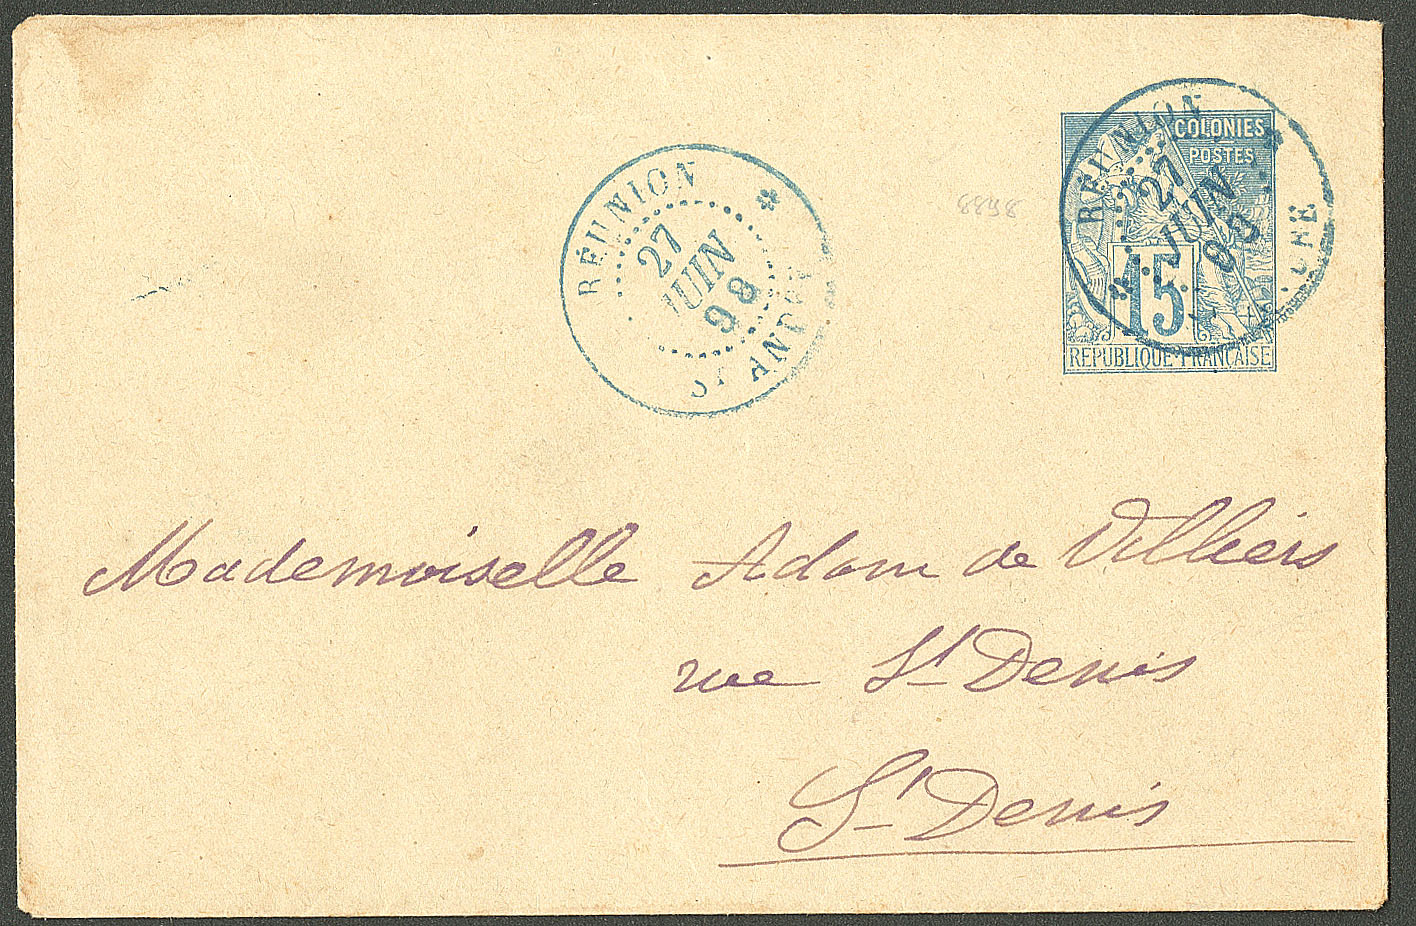 RÉUNION
27
JUIN
98
ST ANDRÉ
8898
COLONIES
POSTES
15
REPUBLIQUE FRANÇAISE
RÉUNION
27
JUIN
Mademoiselle Adam de Villiers
rue St Denis
St Denis